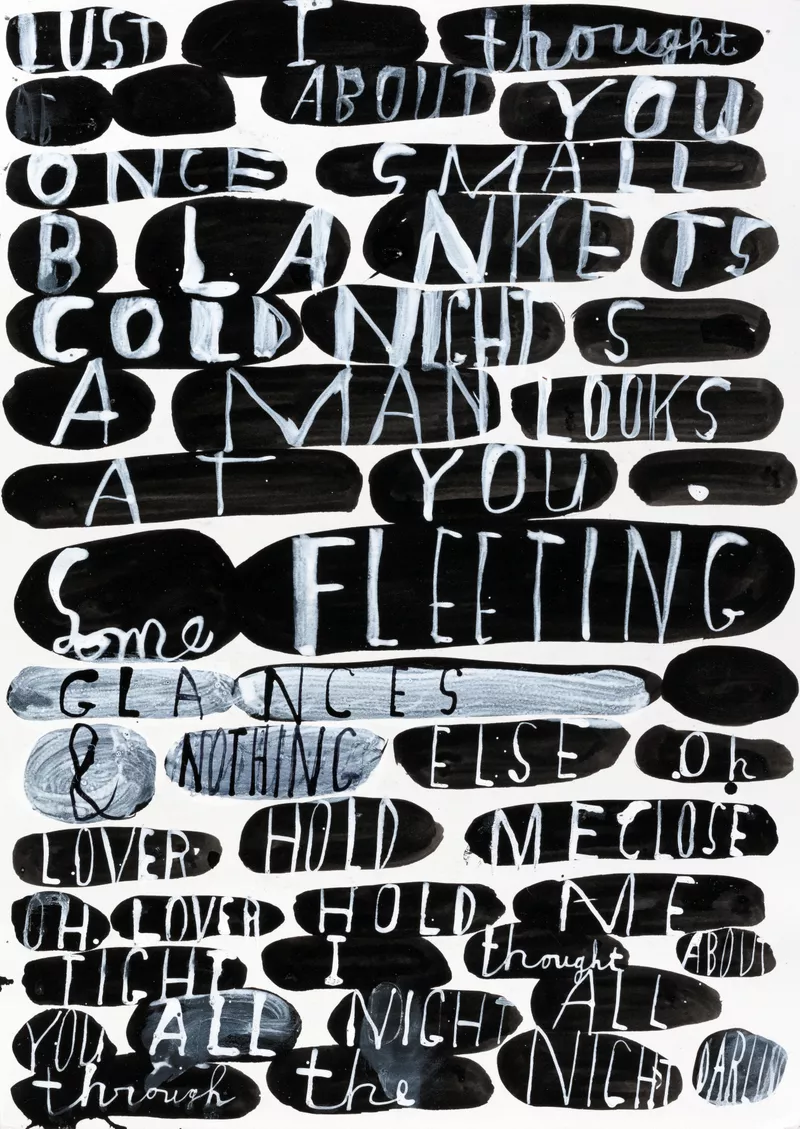 LUST I thought
ABOUT YOU
ONCE SMALL
BLANKETS
COLD NIGHTS
A MAN LOOKS
AT YOU.
Some FLEETING
GLANCES
& NOTHING ELSE. Oh
LOVER. HOLD ME CLOSE
OH. LOVER HOLD ME
TIGHT I thought ABOUT
YOU ALL NIGHT ALL
through the NIGHT DARLIN